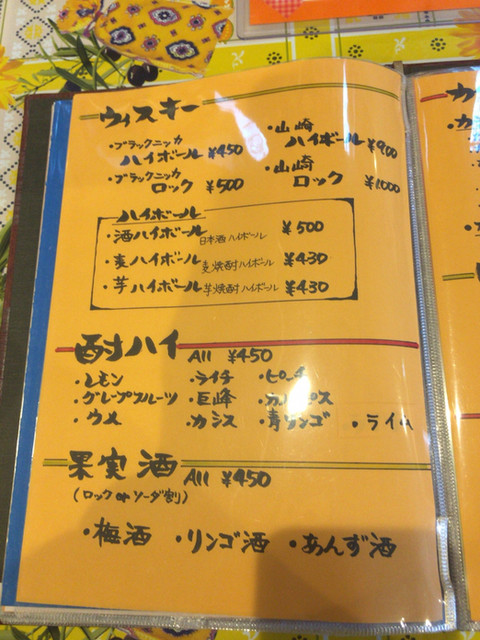 ウィスキー
・ブラックニッカ
ハイボール ¥450
・山崎
ハイボール ¥900
・ブラックニッカ
ロック ¥500
・山崎
ロック ¥1,000
ハイボール
・酒ハイボール 日本酒ハイボール ¥500
・麦ハイボール 麦焼酎ハイボール ¥430
・芋ハイボール 芋焼酎ハイボール ¥430
酎ハイ All ¥450
・レモン ・ライチ ・ピーチ
・グレープフルーツ ・巨峰 ・カルピス
・ウメ ・カシス ・青リンゴ ・ライム
果実酒 All ¥450
(ロック or ソーダ割)
・梅酒 ・リンゴ酒 ・あんず酒